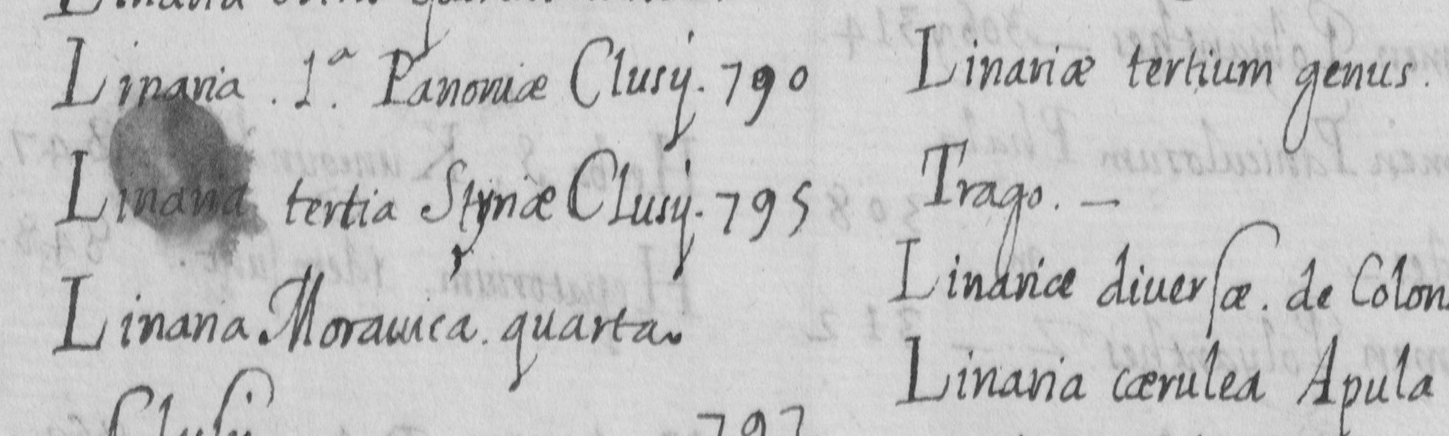 Linaria . 1.ª Panoniæ Clusij. 790
Linaria tertia Styriæ Clusij. 795
Linaria Morauica. quarta.
Clusij 797
Linariæ tertium genus.
Trago. —
Linariæ diuersæ. de Colon
Linaria cærulea Apula